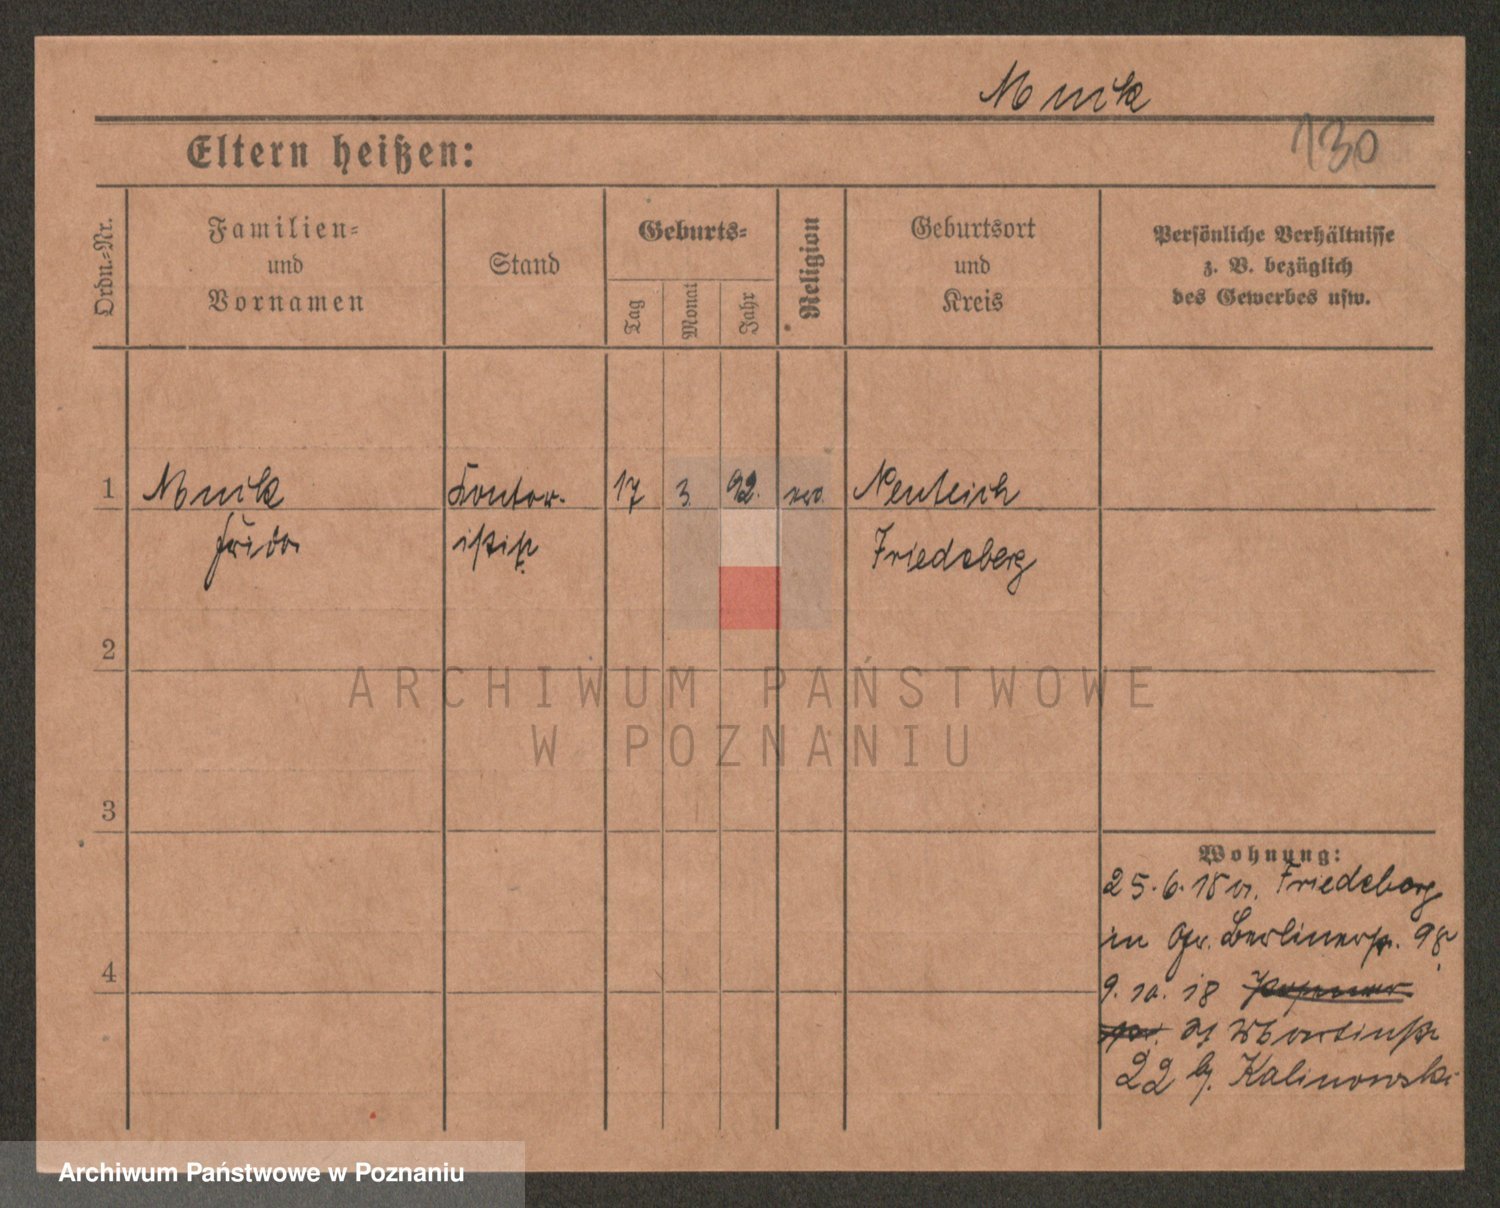 Munk
130
Eltern heißen:
Ordn.-Nr.
Familien-
und
Vornamen
Stand
Geburts-
Tag
Monat
Jahr
Religion
Geburtsort
und
Kreis
Persönliche Verhältnisse
z. B. bezüglich
des Gewerbes usw.
1
Kontor-
17
3.
92.
Friedeberg
istin
2
ARCHIWUM PAŃSTWOWE
W POZNANIU
3
Wohnung:
25.6.18 v. Friedeberg
in Gr. Berlinerstr. 98
4
9.10.18
St Martinstr
22 b. Kalinowski
Archiwum Państwowe w Poznaniu